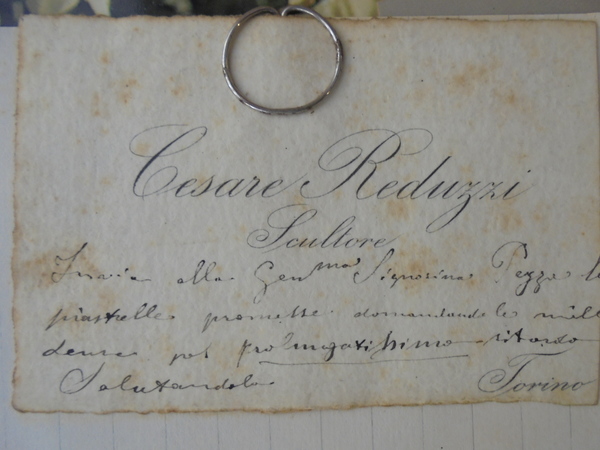 Cesare Reduzzi
Scultore
Invia alla Gen^ma Signorina Pezza le
piastrelle promesse domandandole mille
scuse pel prolungatissimo ritardo
Salutandola
Torino